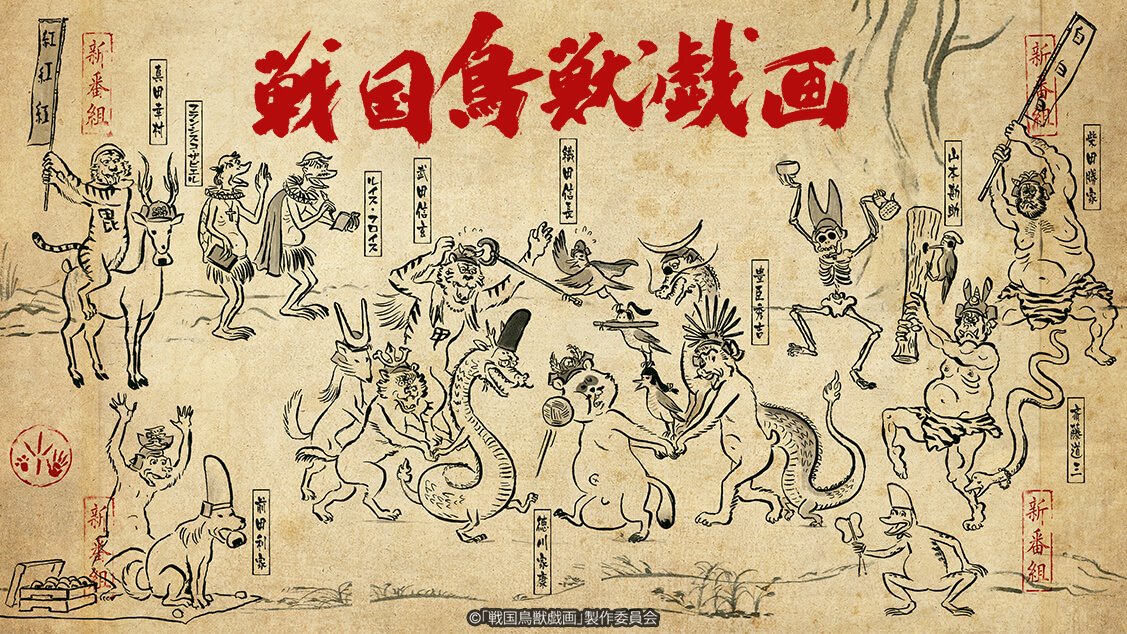 戦国鳥獣戯画
紅紅紅
新番組
真田幸村
フランシスコ・ザビエル
ルイス・フロイス
武田信玄
織田信長
豊臣秀吉
山本勘助
柴田勝家
新番組
白白
毘
斎藤道三
前田利家
徳川家康
新番組
新番組
©「戦国鳥獣戯画」製作委員会